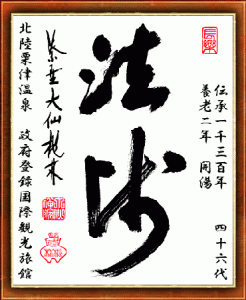 伝承一千三百年 四十六代
養老二年 開湯
法師
大仙
北陸粟津温泉 政府登録国際観光旅館